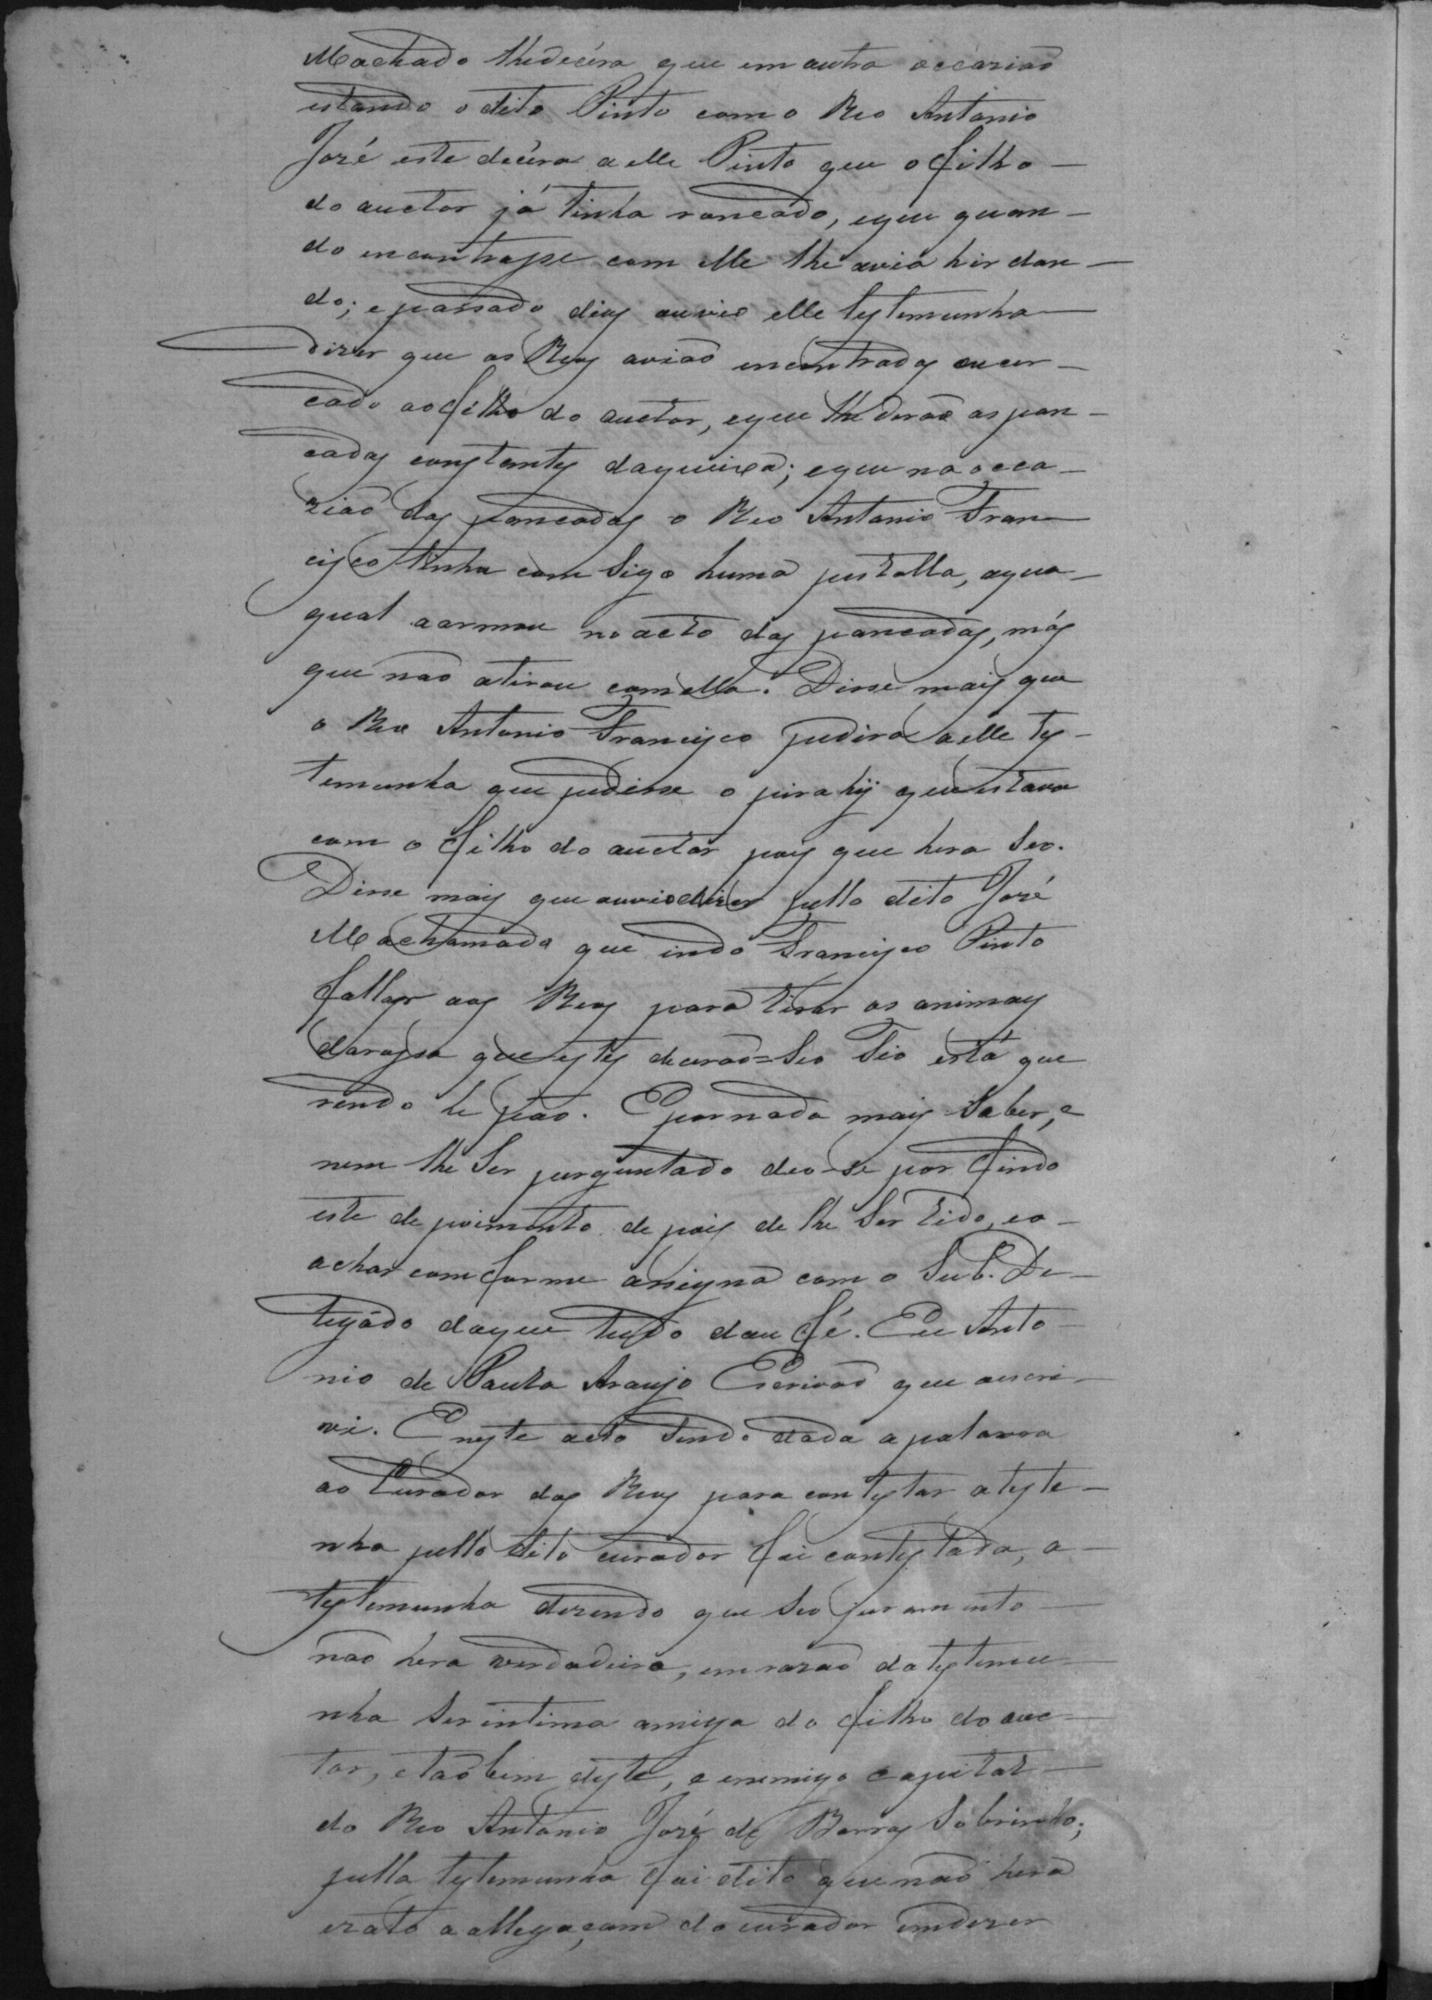 Machado lhe decéra que em outra occazião
estando o dito Pinto com o Reo Antonio
José este decéra a elle Pinto que o filho
do auctor já tinha roncádo, e que quan-
do encontrasse com elle lhe avia hir dan-
do; e passado dias ouvio elle testemunha
dizer que os Reos avião encontrados ou cer-
cado ao filho do auctor, e que lhe derão as pan-
cadas constantes da queixa; e que na occa-
zião das pancadas o Reo Antonio Fran-
cisco tinha com sigo huma pistolla, a qua-
qual a armou no acto das pancadas, más
que não atirou com ella. Disse mais que
o Reo Antonio Francisco pedira a elle tes-
temunha que pedisse o pirahÿ que estava
com o filho do auctor pois que hera Seo.
Disse mais que ouvio dizer pello dito José
Machamado que indo Francisco Pinto
fallar aos Reos para tirar os animais
da rossa que estes decerão = Seo Tio está que
rendo le pao. E por nada mais Saber, e
nem lhe Ser perguntado deo-se por findo
este depoimento depois de lhe Ser lido, e o
achar comforme assigna com o Sub. De-
legádo do que tudo dou fé. Eu Anto-
nio de Paula Araujo Escrivão que escre-
vi. E neste acto Sendo dada a palavra
ao Curador dos Reos para contestar a teste-
nha pello dito curador foi contestada, a
testemunha dizendo que Seo juramento
não hera verdadeiro, em razão da testemu-
nha Ser intima amiga do filho do auc-
tor, e tãobem deste, e enemigo capital
do Reo Antonio José de Barros Sobrinho;
pella testemunha foi dito que não hera
ezato a allegaçam do curador em dizer